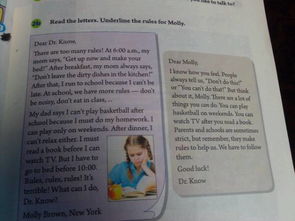 like to talk to?
2b Read the letters. Underline the rules for Molly.
Dear Dr. Know,
There are too many rules! At 6:00 a.m., my
mom says, "Get up now and make your
bed!" After breakfast, my mom always says,
"Don't leave the dirty dishes in the kitchen!"
After that, I run to school because I can't be
late. At school, we have more rules — don't
be noisy, don't eat in class, ...
My dad says I can't play basketball after
school because I must do my homework. I
can play only on weekends. After dinner, I
can't relax either. I must
read a book before I can
watch TV. But I have to
go to bed before 10:00.
Rules, rules, rules! It's
terrible! What can I do,
Dr. Know?
Molly Brown, New York
Dear Molly,
I know how you feel. People
always tell us, "Don't do this!"
or "You can't do that!" But think
about it, Molly. There are a lot of
things you can do. You can play
basketball on weekends. You can
watch TV after you read a book.
Parents and schools are sometimes
strict, but remember, they make
rules to help us. We have to follow
them.
Good luck!
Dr. Know